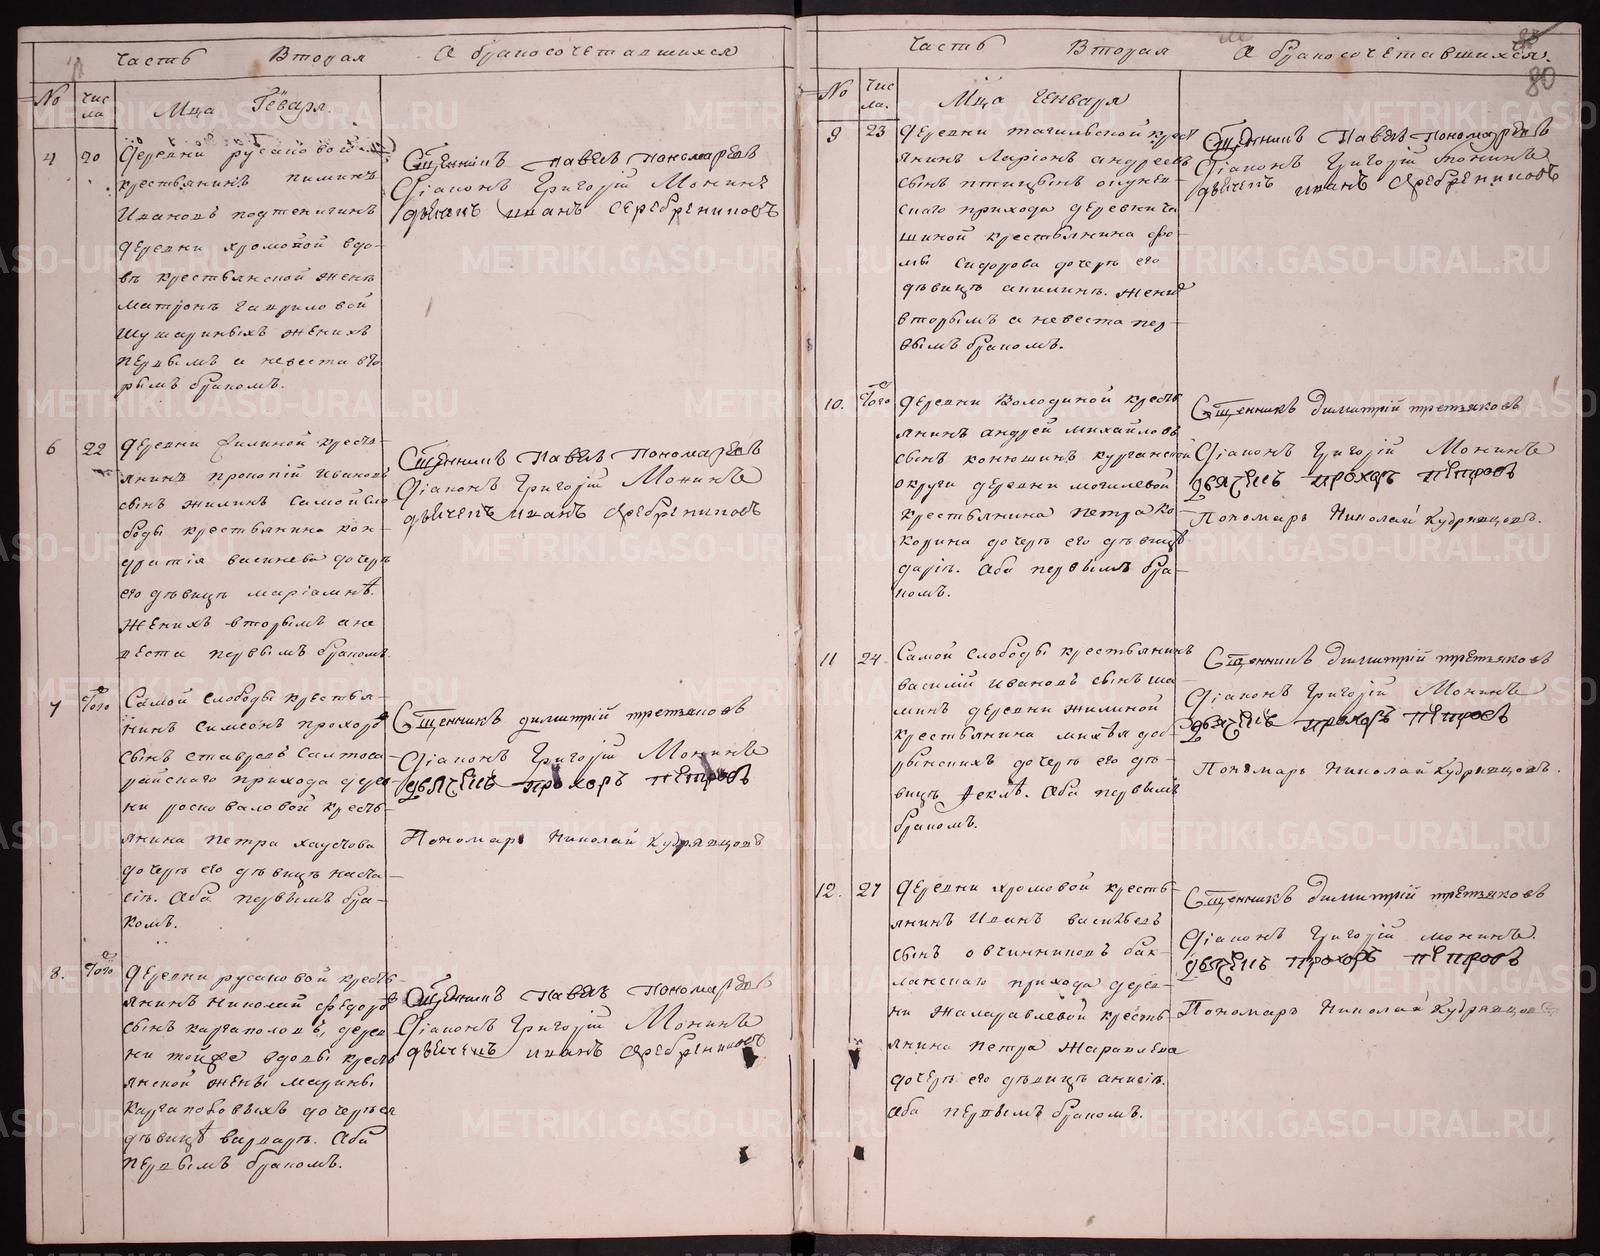 Часть Вторая О бракосочетавшихся
No Чис
ла Мца Генваря
4 20 Деревни русаковой
крестьянинъ пиминъ
Ивановъ подтеничинъ
деревни хромовой вдо-
вѣ крестьянской женѣ
матронѣ гавриловой
шушариныхъ женихъ
первымъ а невеста вто
рымъ бракомъ.
Сщенникъ Павелъ Пономаревъ
Діаконъ Григорій Мокинъ
дьячекъ иванъ серебрениковъ
6 22 деревни филиной кресть-
янинъ прокопій Ивановъ
сынъ жилинъ самой сло
боды крестьянина кон-
дратія василева дочерь
его дѣвицѣ маріамнѣ.
Женихъ вторымъ а не
веста первымъ бракомъ.
Сщенникъ Павелъ Пономаревъ
Діаконъ Григорій Мокинъ
дьячекъ иванъ серебрениковъ
7 Того Самой слободы крестья-
нинъ симеонъ прохоровъ
сынъ ставровъ салтоса
райскаго прихода дерев-
ни росковаловой кресть-
янина петра хаустова
дочерь его дѣвицѣ наста-
сіѣ. Оба первымъ бра-
комъ.
Сщенникъ димитрій третьяковъ
Діаконъ Григорій Мокинъ
дьячекъ прохоръ петровъ
Пономарь Николай Кудрявцовъ
8. Того деревни русаковой кресть-
янинъ николай федоровъ
сынъ каргаполовъ, дерев
ни тойже вдовы кресть
янской жены марины
каргаполовыхъ дочерь ея
дѣвицѣ варварѣ. Оба
первымъ бракомъ.
Сщенникъ Павелъ Пономаревъ
Діаконъ Григорій Мокинъ
дьячекъ иванъ серебрениковъ
Часть Вторая О бракосочетавшихся.
80
No Чис
ла. Мца Генваря
9 23 деревни тагильской крест
янинъ Ларіонъ андреевъ
сынъ птицынъ окунев-
скаго прихода деревни ча
шиной крестьянина фо-
мы сидорова дочерь его
дѣвицѣ акилинѣ. женихъ
вторымъ а невеста пер-
вымъ бракомъ.
Сщенникъ Павелъ Пономаревъ
Діаконъ Григорій Мокинъ
дьячекъ иванъ серебрениковъ
10. Того деревни Володиной кресть
янинъ андрей михайловъ
сынъ конюшинъ курганской
округи деревни могилевой
крестьянина петра ко
корина дочерь его дѣвицѣ
даріѣ. Оба первымъ бра-
комъ.
Сщенникъ димитрій третьяковъ
Діаконъ Григорій Мокинъ
дьячекъ прохоръ петровъ
Пономарь Николай Кудрявцовъ.
11 24 Самой слободы крестьянинъ
василій ивановъ сынъ ша
минъ деревни жилиной
крестьянина михѣя до-
рынскихъ дочерь его дѣ-
вицѣ феклѣ. Оба первымъ
бракомъ.
Сщенникъ димитрій третьяковъ
Діаконъ Григорій Мокинъ
дьячекъ прохоръ петровъ
Пономарь Николай Кудрявцовъ.
12. 27 деревни хромовой кресть-
янинъ Иванъ васильевъ
сынъ овчинниковъ бак-
ланскаго прихода дерев-
ни жаларавлевой кресть
янина петра жаравлева
дочерь его дѣвицѣ анисіѣ.
Оба первымъ бракомъ.
Сщенникъ димитрій третьяковъ
Діаконъ Григорій мокинъ.
дьячекъ прохоръ петровъ
Пономарь Николай Кудрявцовъ
METRIKI.GASO-URAL.RU